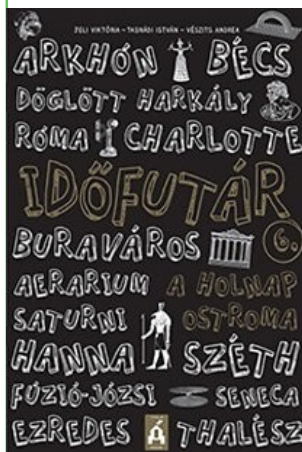 ZOLI VIKTÓRIA – TASNÁDI ISTVÁN – VÉSZITS ANDREA
ARKHÓN BÉCS
DÖGLÖTT HARKÁLY
RÓMA CHARLOTTE
IDŐFUTÁR
BURAVÁROS 6.
AERARIUM A HOLNAP
SATURNI OSTROMA
HANNA SZÉTH
FÚZIÓ-JÓZSI SENECA
EZREDES THALÉSZ